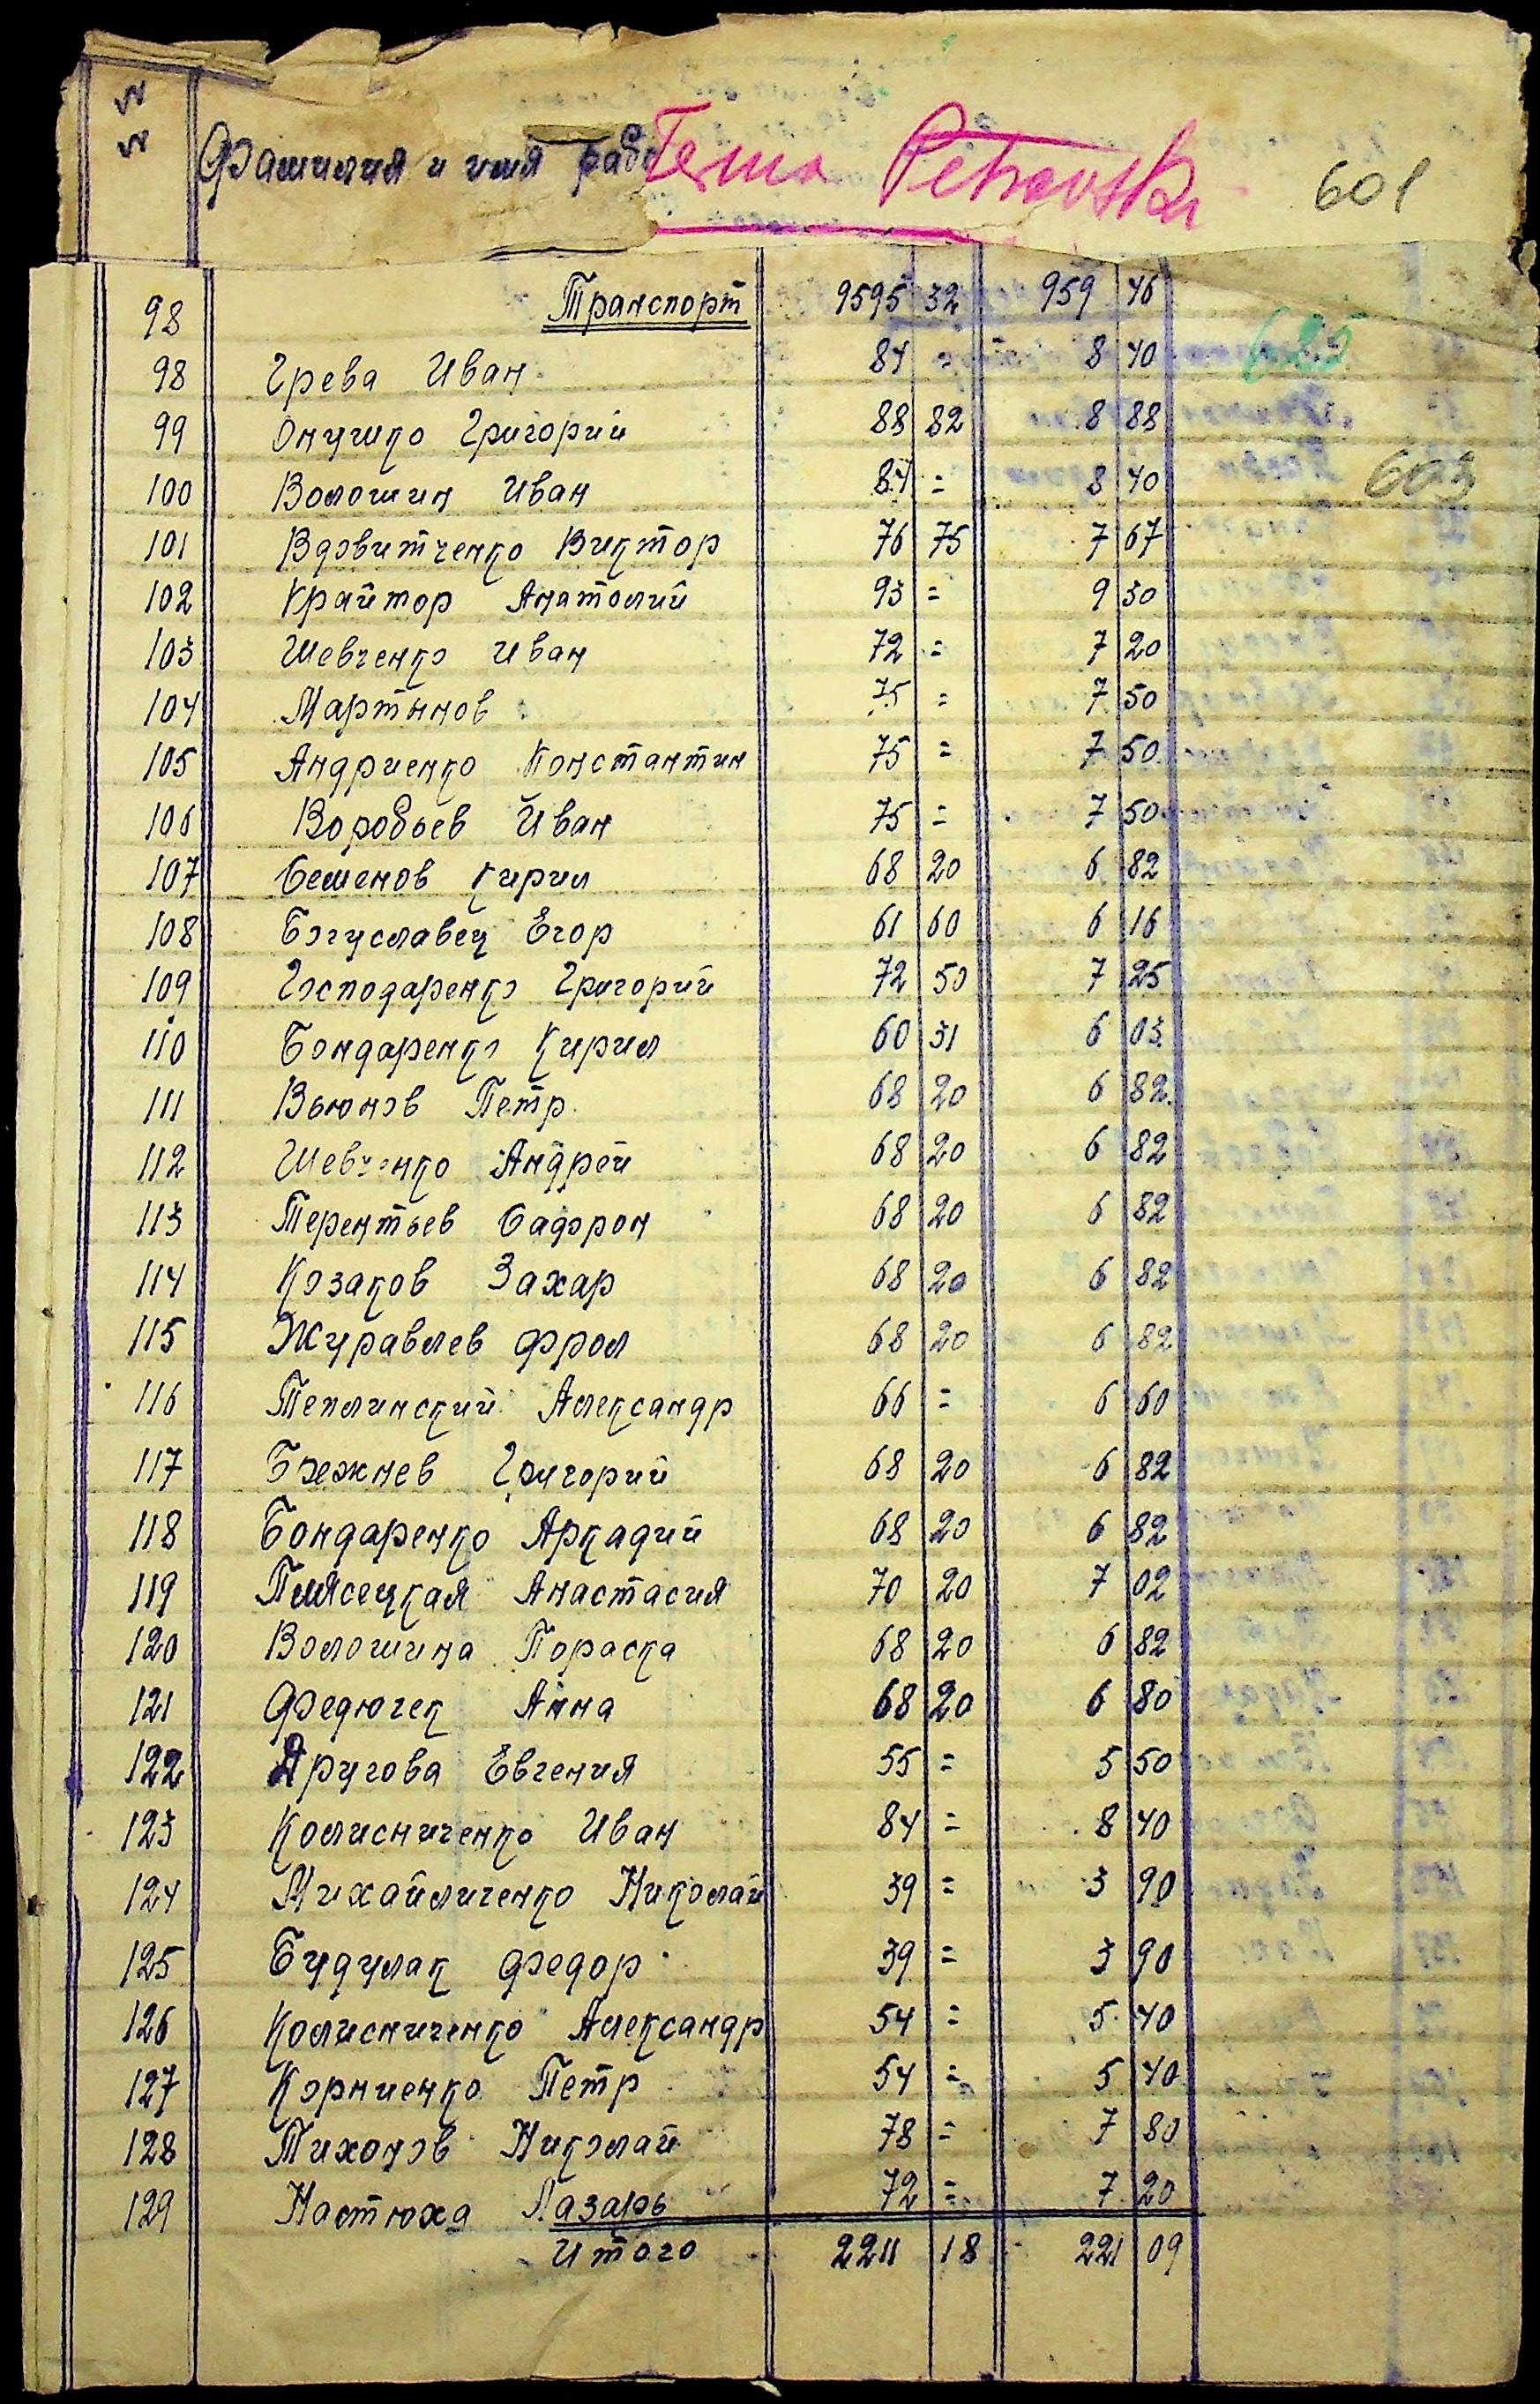 № №
Фамилия и имя рабо Ferma Petrovski 601
98 Транспорт 9595 32 959 46
625
98 Грева Иван 84 = 8 40
99 Онушко Григорий 88 82 8 88
100 Волошин Иван 84 = 8 40 603
101 Вдовитченко Виктор 76 75 7 67
102 Крайтор Анатолий 93 = 9 30
103 Шевченко Иван 72 = 7 20
104 Мартынов 75 = 7 50
105 Андриенко Константин 75 = 7 50
106 Воробьев Иван 75 = 7 50
107 Семенов Кирил 68 20 6 82
108 Богуславец Егор 61 60 6 16
109 Господаренко Григорий 72 50 7 25
110 Бондаренко Кирил 60 31 6 03
111 Вьюнов Петр 68 20 6 82
112 Шевченко Андрей 68 20 6 82
113 Терентьев Сафрон 68 20 6 82
114 Козаков Захар 68 20 6 82
115 Журавлев Фрол 68 20 6 82
116 Теплинский Александр 66 = 6 60
117 Бежнев Григорий 68 20 6 82
118 Бондаренко Аркадий 68 20 6 82
119 Плясецкая Анастасия 70 20 7 02
120 Волошина Пораска 68 20 6 82
121 Федючек Анна 68 20 6 80
122 Другова Евгения 55 = 5 50
123 Колисниченко Иван 84 = 8 40
124 Михайличенко Николай 39 = 3 90
125 Будулак Федор 39 = 3 90
126 Колисниченко Александр 54 = 5 40
127 Корниенко Петр 54 = 5 40
128 Тихонов Николай 78 = 7 80
129 Настюха Лазарь 72 = 7 20
Итого 2211 18 221 09